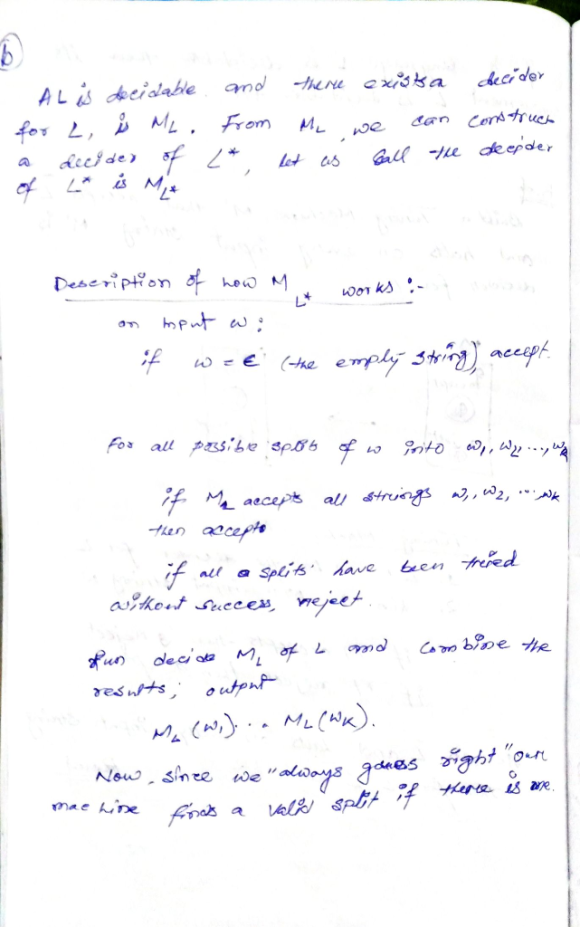 b
AL is decidable and there exists a decider
for L, is ML. From ML, we can construct
a decider of L*, let us call the decider
of L* is ML*
Description of how ML* works :-
on input w:
if w = ε (the empty string) accept.
For all possible splits of w into w1, w2, ..., wk
if ML accepts all strings w1, w2, ... wk
then accepts
if all a splits have been treied
without success, reject.
Run decide ML of L and combine the
results; output
ML (w1) ... ML (wk).
Now, since we "always guess right" our
machine finds a valid split if there is one.